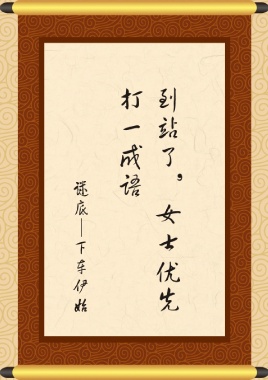 到站了，女士优先
打一成语
谜底——下车伊始